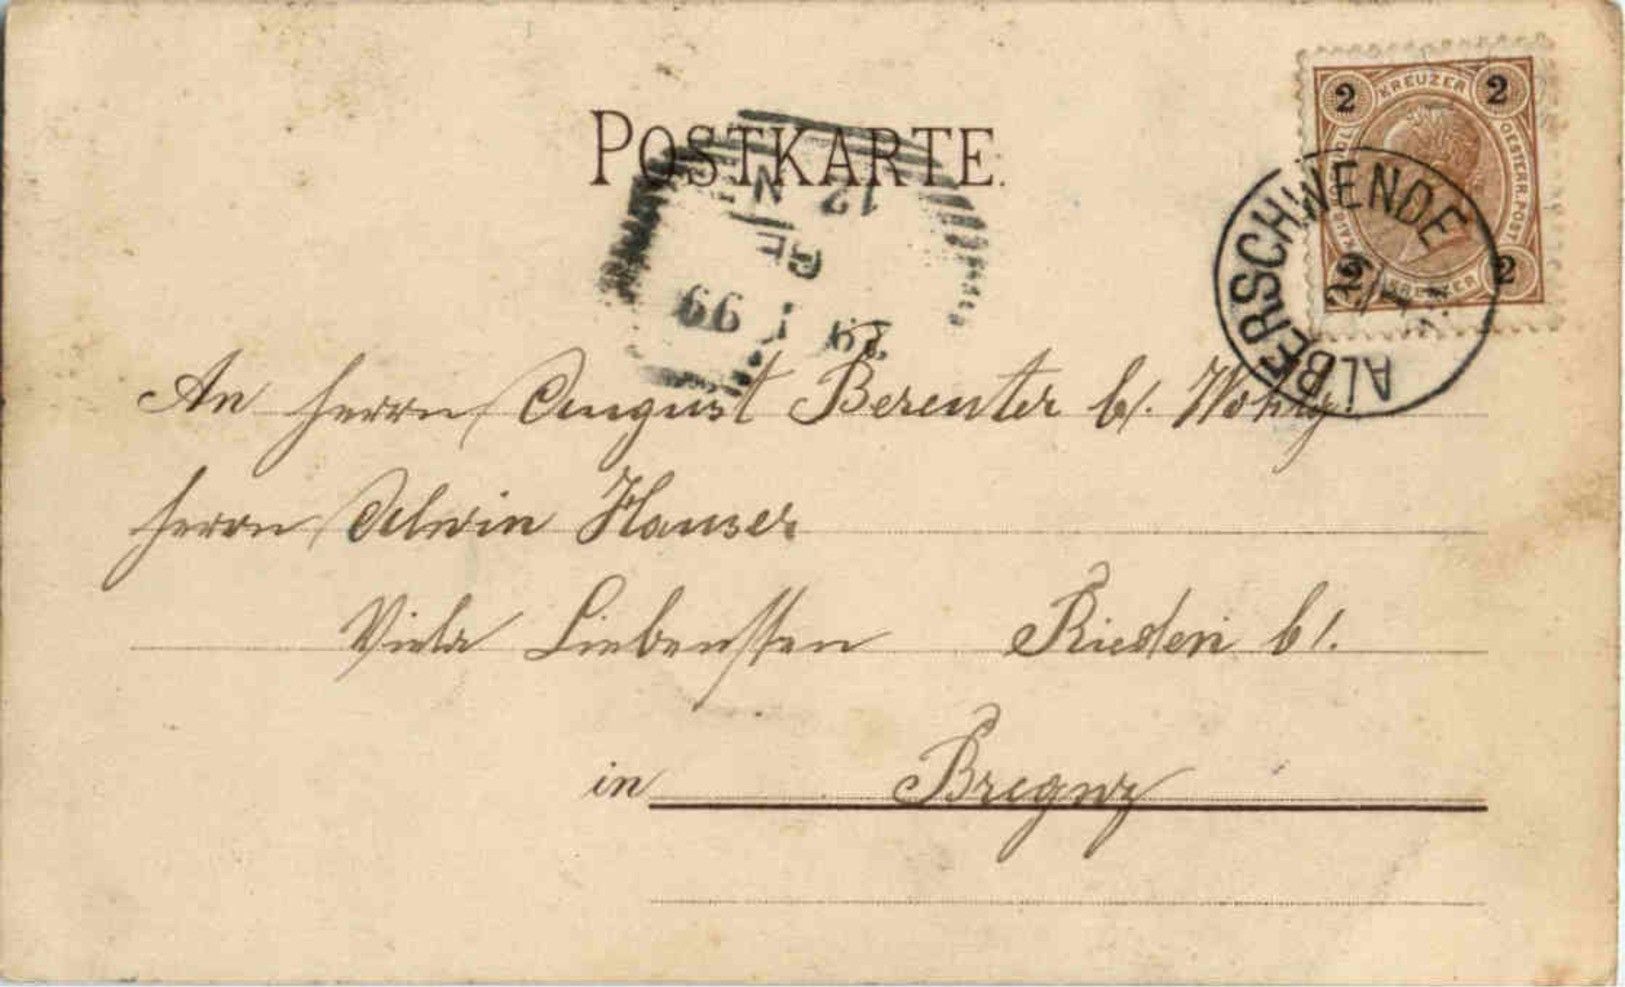 POSTKARTE.
2 KREUZER 2
OESTERR. POST
2 KREUZER 2
ALBERSCHWENDE
12 N
99
An Herrn August Bereuter b/. Wohlg
Herrn Alwin Hauser
Villa Liebenstein Rieden b/.
in Bregnz